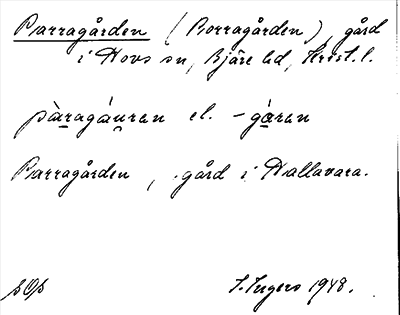 Parragården (Borragården), gård
i Hovs sn, Bjäre hd, Krist. l.
pàragáuran el. -gáran
Parragården, gård i Hallavara.
I. Ingers 1948.